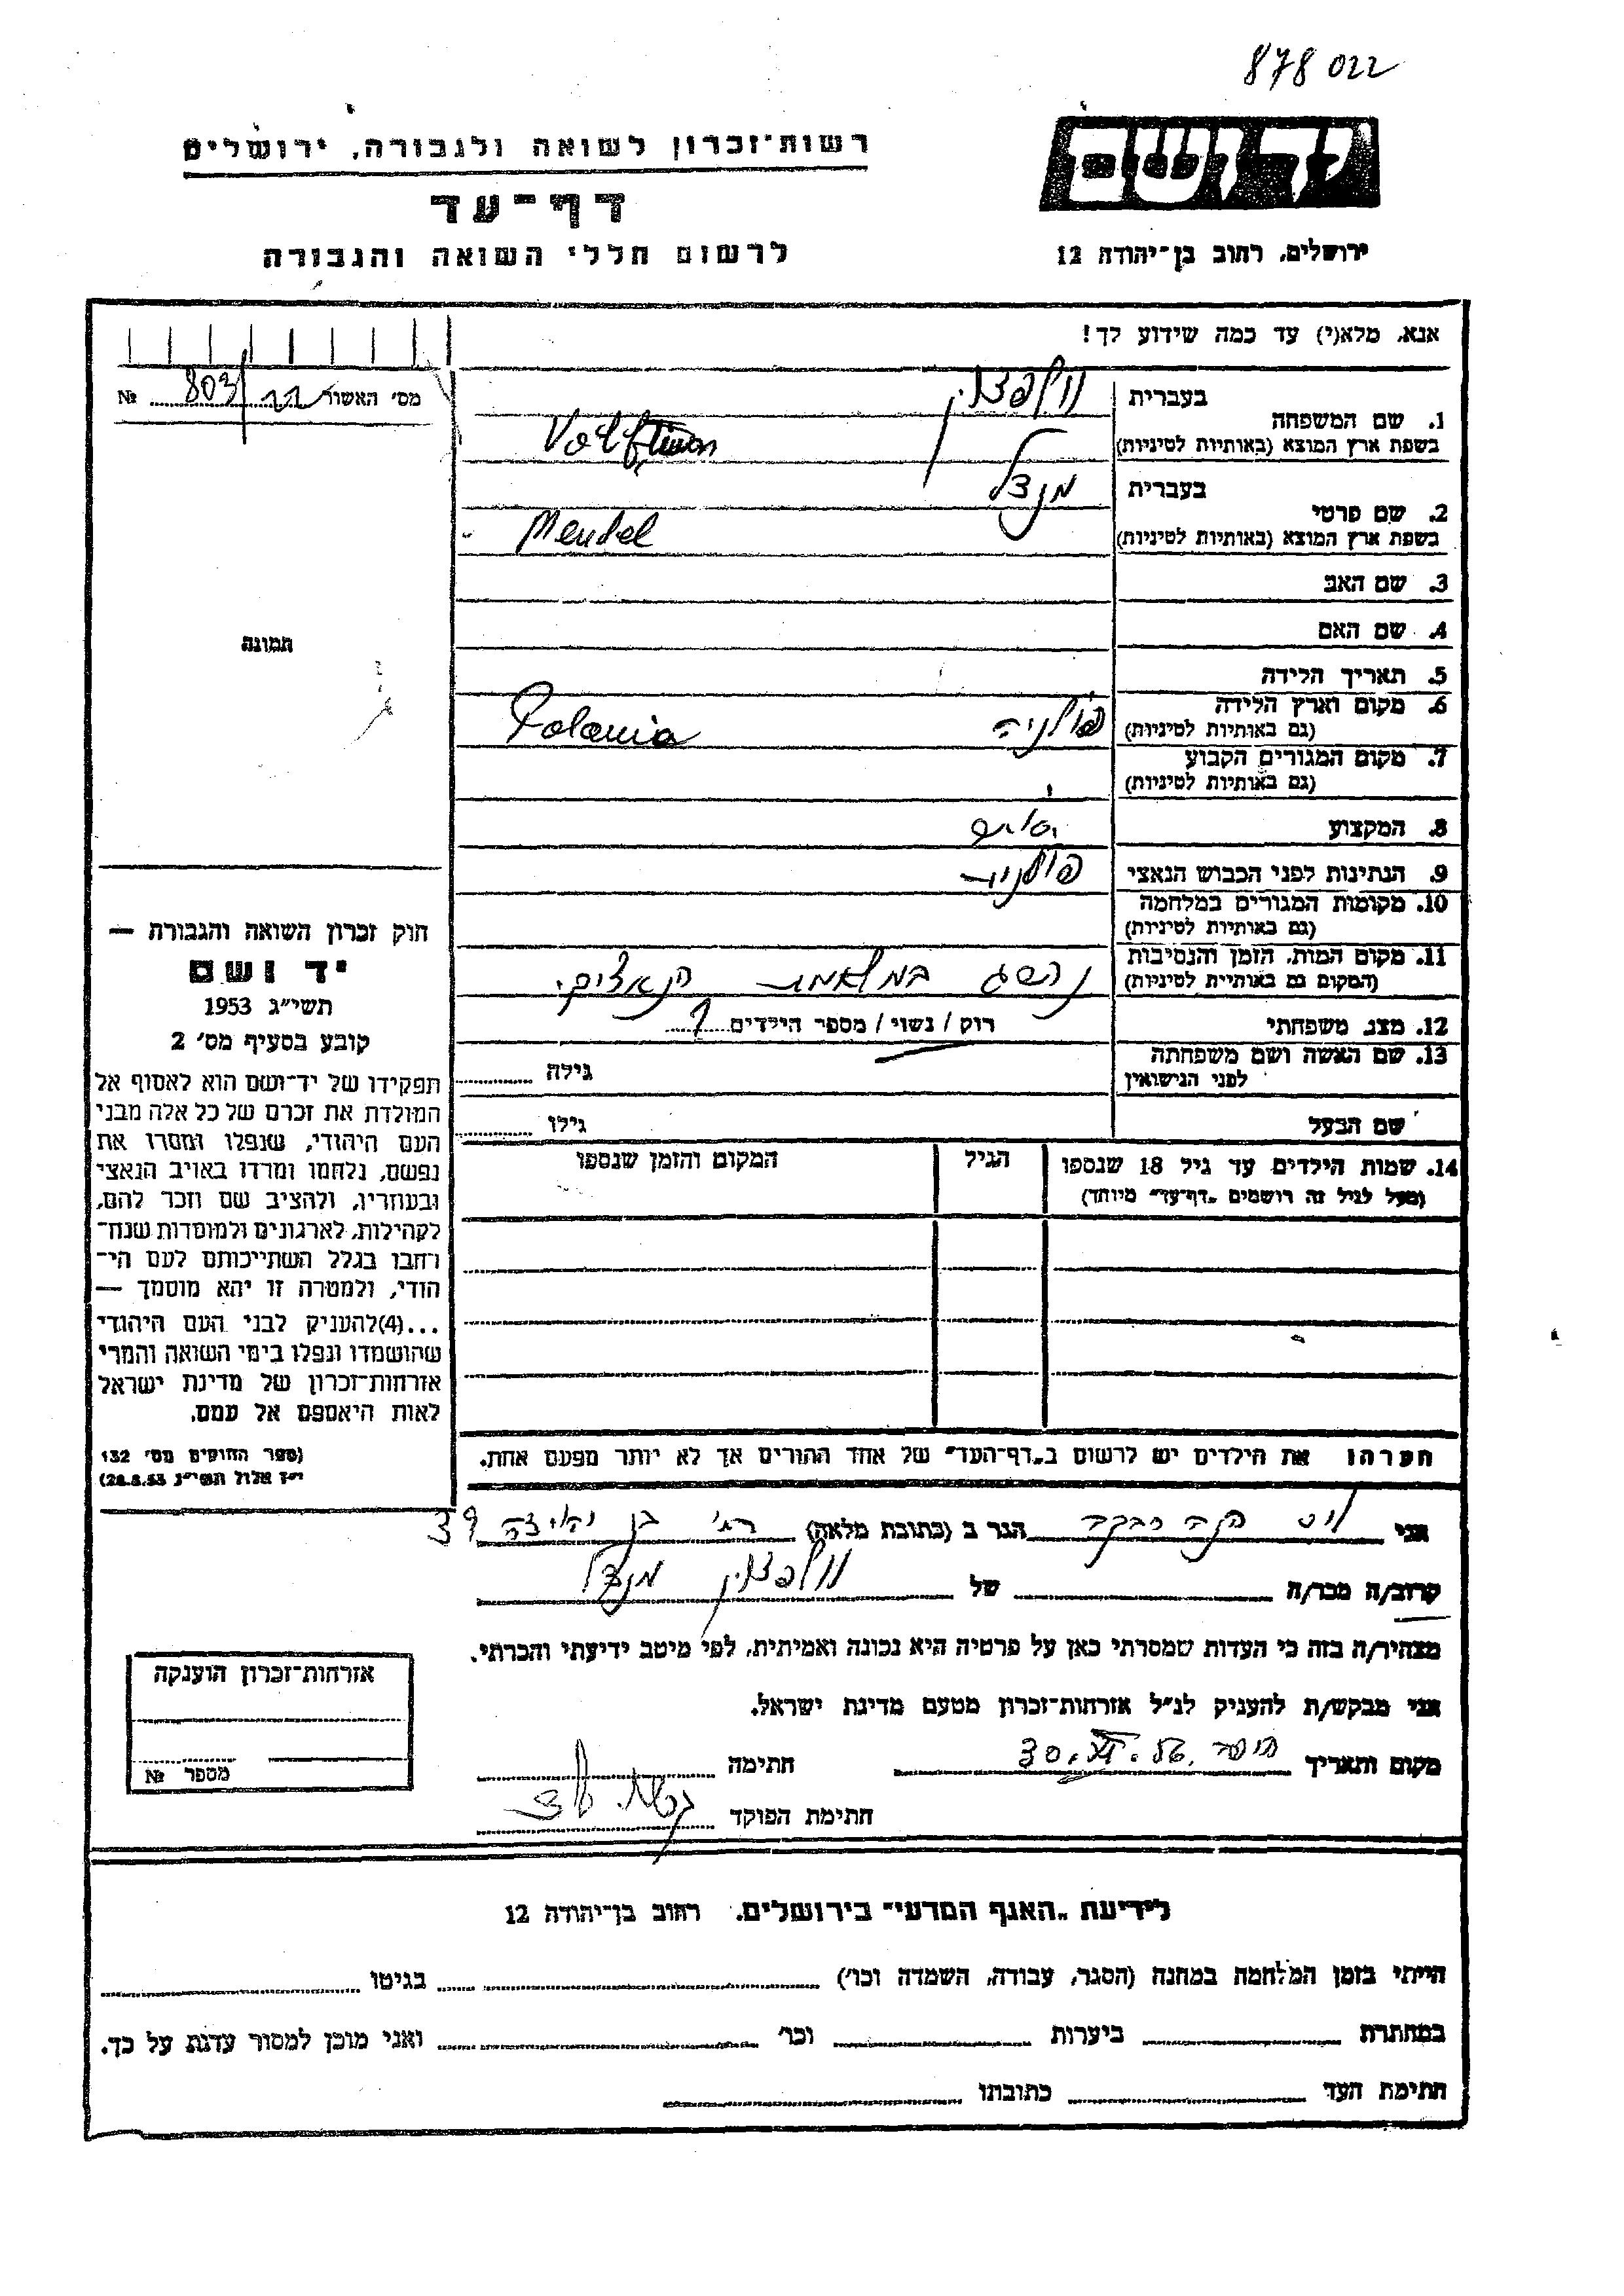 878022
יד ושם
רשות־זכרון לשואה ולגבורה, ירושלים
דף־עד
לרשום חללי השואה והגבורה
ירושלים, רחוב בן־יהודה 12
אנא, מלא(י) עד כמה שידוע לך!
מס' האשור 803 №
1. שם המשפחה בעברית
בשפת ארץ המוצא (באותיות לטיניות)
2. שם פרטי בעברית מנדל
בשפת ארץ המוצא (באותיות לטיניות) Mendel
3. שם האב
4. שם האם
5. תאריך הלידה
6. מקום וארץ הלידה פולניה Polania
(גם באותיות לטיניות)
7. מקום המגורים הקבוע
(גם באותיות לטיניות)
8. המקצוע
9. הנתינות לפני הכבוש הנאצי פולנית
10. מקומות המגורים במלחמה
(גם באותיות לטיניות)
11. מקום המות, הזמן והנסיבות הנאצים.
(המקום גם באותיות לטיניות)
12. מצב משפחתי רוק / נשוי / מספר הילדים ?
13. שם האשה ושם משפחתה
לפני הנישואין גילה
שם הבעל גילו
14. שמות הילדים עד גיל 18 שנספו הגיל המקום והזמן שנספו
(מעל לגיל זה רושמים „דף־עד" מיוחד)
תמונה
חוק זכרון השואה והגבורה —
יד ושם
תשי"ג 1953
קובע בסעיף מס' 2
תפקידו של יד־ושם הוא לאסוף אל
המולדת את זכרם של כל אלה מבני
העם היהודי, שנפלו ומסרו את
נפשם, נלחמו ומרדו באויב הנאצי
ובעוזריו, ולהציב שם וזכר להם,
לקהילות, לארגונים ולמוסדות שנח־
רחבו בגלל השתייכותם לעם הי־
הודי, ולמטרה זו יהא מוסמך —
...(4)להעניק לבני העם היהודי
שהושמדו ונפלו בימי השואה והמרי
אזרחות־זכרון של מדינת ישראל
לאות היאספם אל עמם.
(ספר החוקים מס' 132
י"ז אלול תשי"ג 28.8.53)
הערה: את הילדים יש לרשום ב„דף־העד" של אחד ההורים אך לא יותר מפעם אחת.
אני הגר ב (כתובת מלאה) רח' בן יהודה 39
קרוב/ה מכר/ה של מנדל
מצהיר/ה בזה כי העדות שמסרתי כאן על פרטיה היא נכונה ואמיתית, לפי מיטב ידיעתי והכרתי.
אני מבקש/ת להעניק לנ"ל אזרחות־זכרון מטעם מדינת ישראל.
מקום ותאריך חתימה
חתימת הפוקד
אזרחות־זכרון הוענקה
מספר №
לידיעת „האגף המדעי" בירושלים, רחוב בן־יהודה 12
הייתי בזמן המלחמה במחנה (הסגר, עבודה, השמדה וכו') בגיטו
במחתרת ביערות וכו' ואני מוכן למסור עדות על כך.
חתימת העד כתובתו